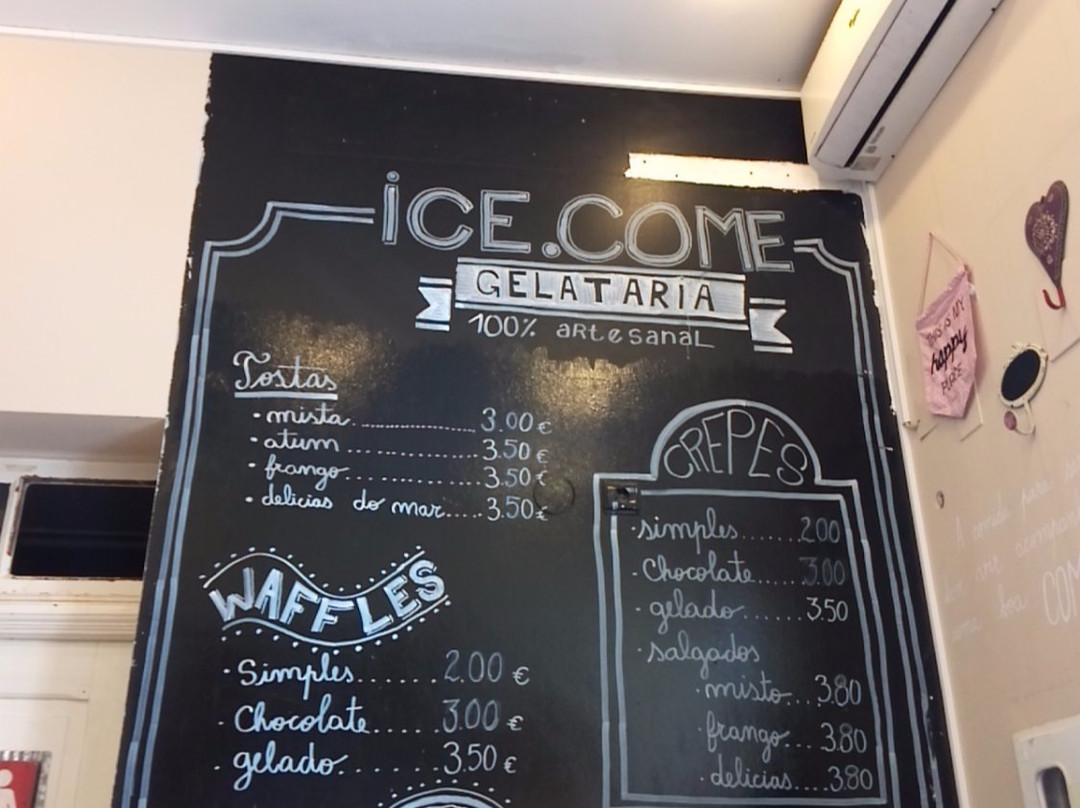 ICE.COME
GELATARIA
100% artesanal
Tostas
• mista.................... 3.00 €
• atum.................... 3.50 €
• frango.................. 3.50 €
• delicias do mar..... 3.50 €
WAFFLES
• Simples....... 2.00 €
• Chocolate...... 3.00 €
• gelado......... 3.50 €
CREPES
• simples....... 2.00
• Chocolate..... 3.00
• gelado........ 3.50
• salgados
• misto... 3.80
• frango... 3.80
• delicias.... 3.80
THIS IS MY
happy
PLACE
A comida para